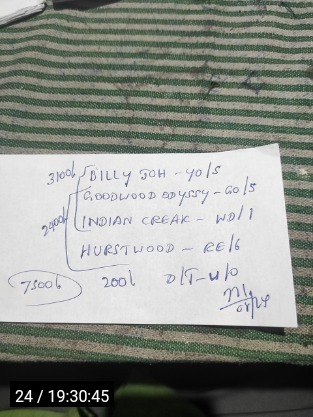 3100/- BILLY JOH - YO/S
GOODWOOD ODYSSY - GO/S
2000/-
INDIAN CREAK - WD/1
HURSTWOOD - RE/6
7500/- 200/- D/T-W/O
24 / 19:30:45